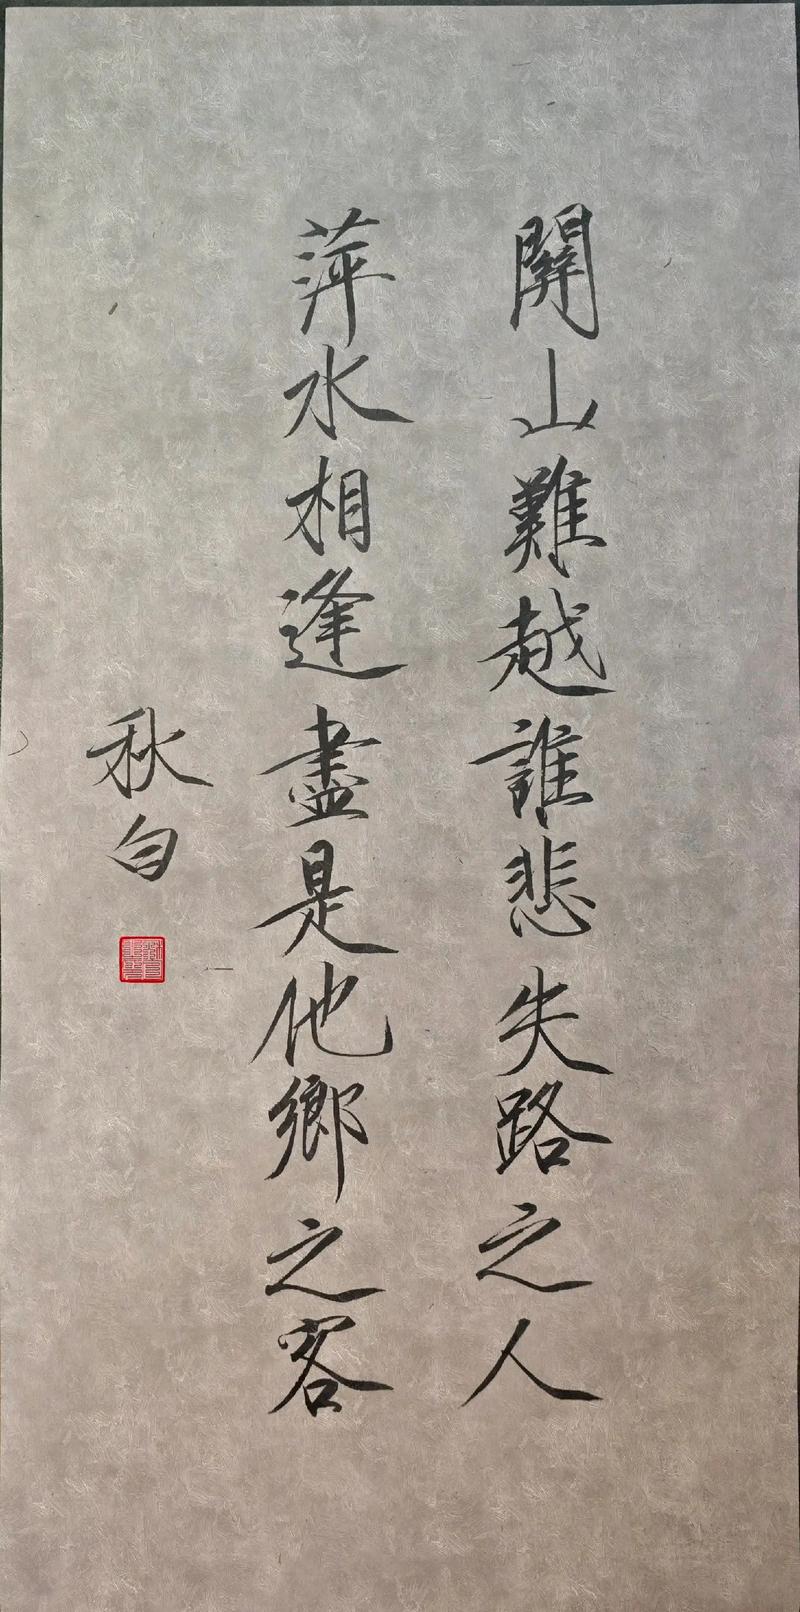 關山難越誰悲失路之人
萍水相逢盡是他鄉之客
秋白